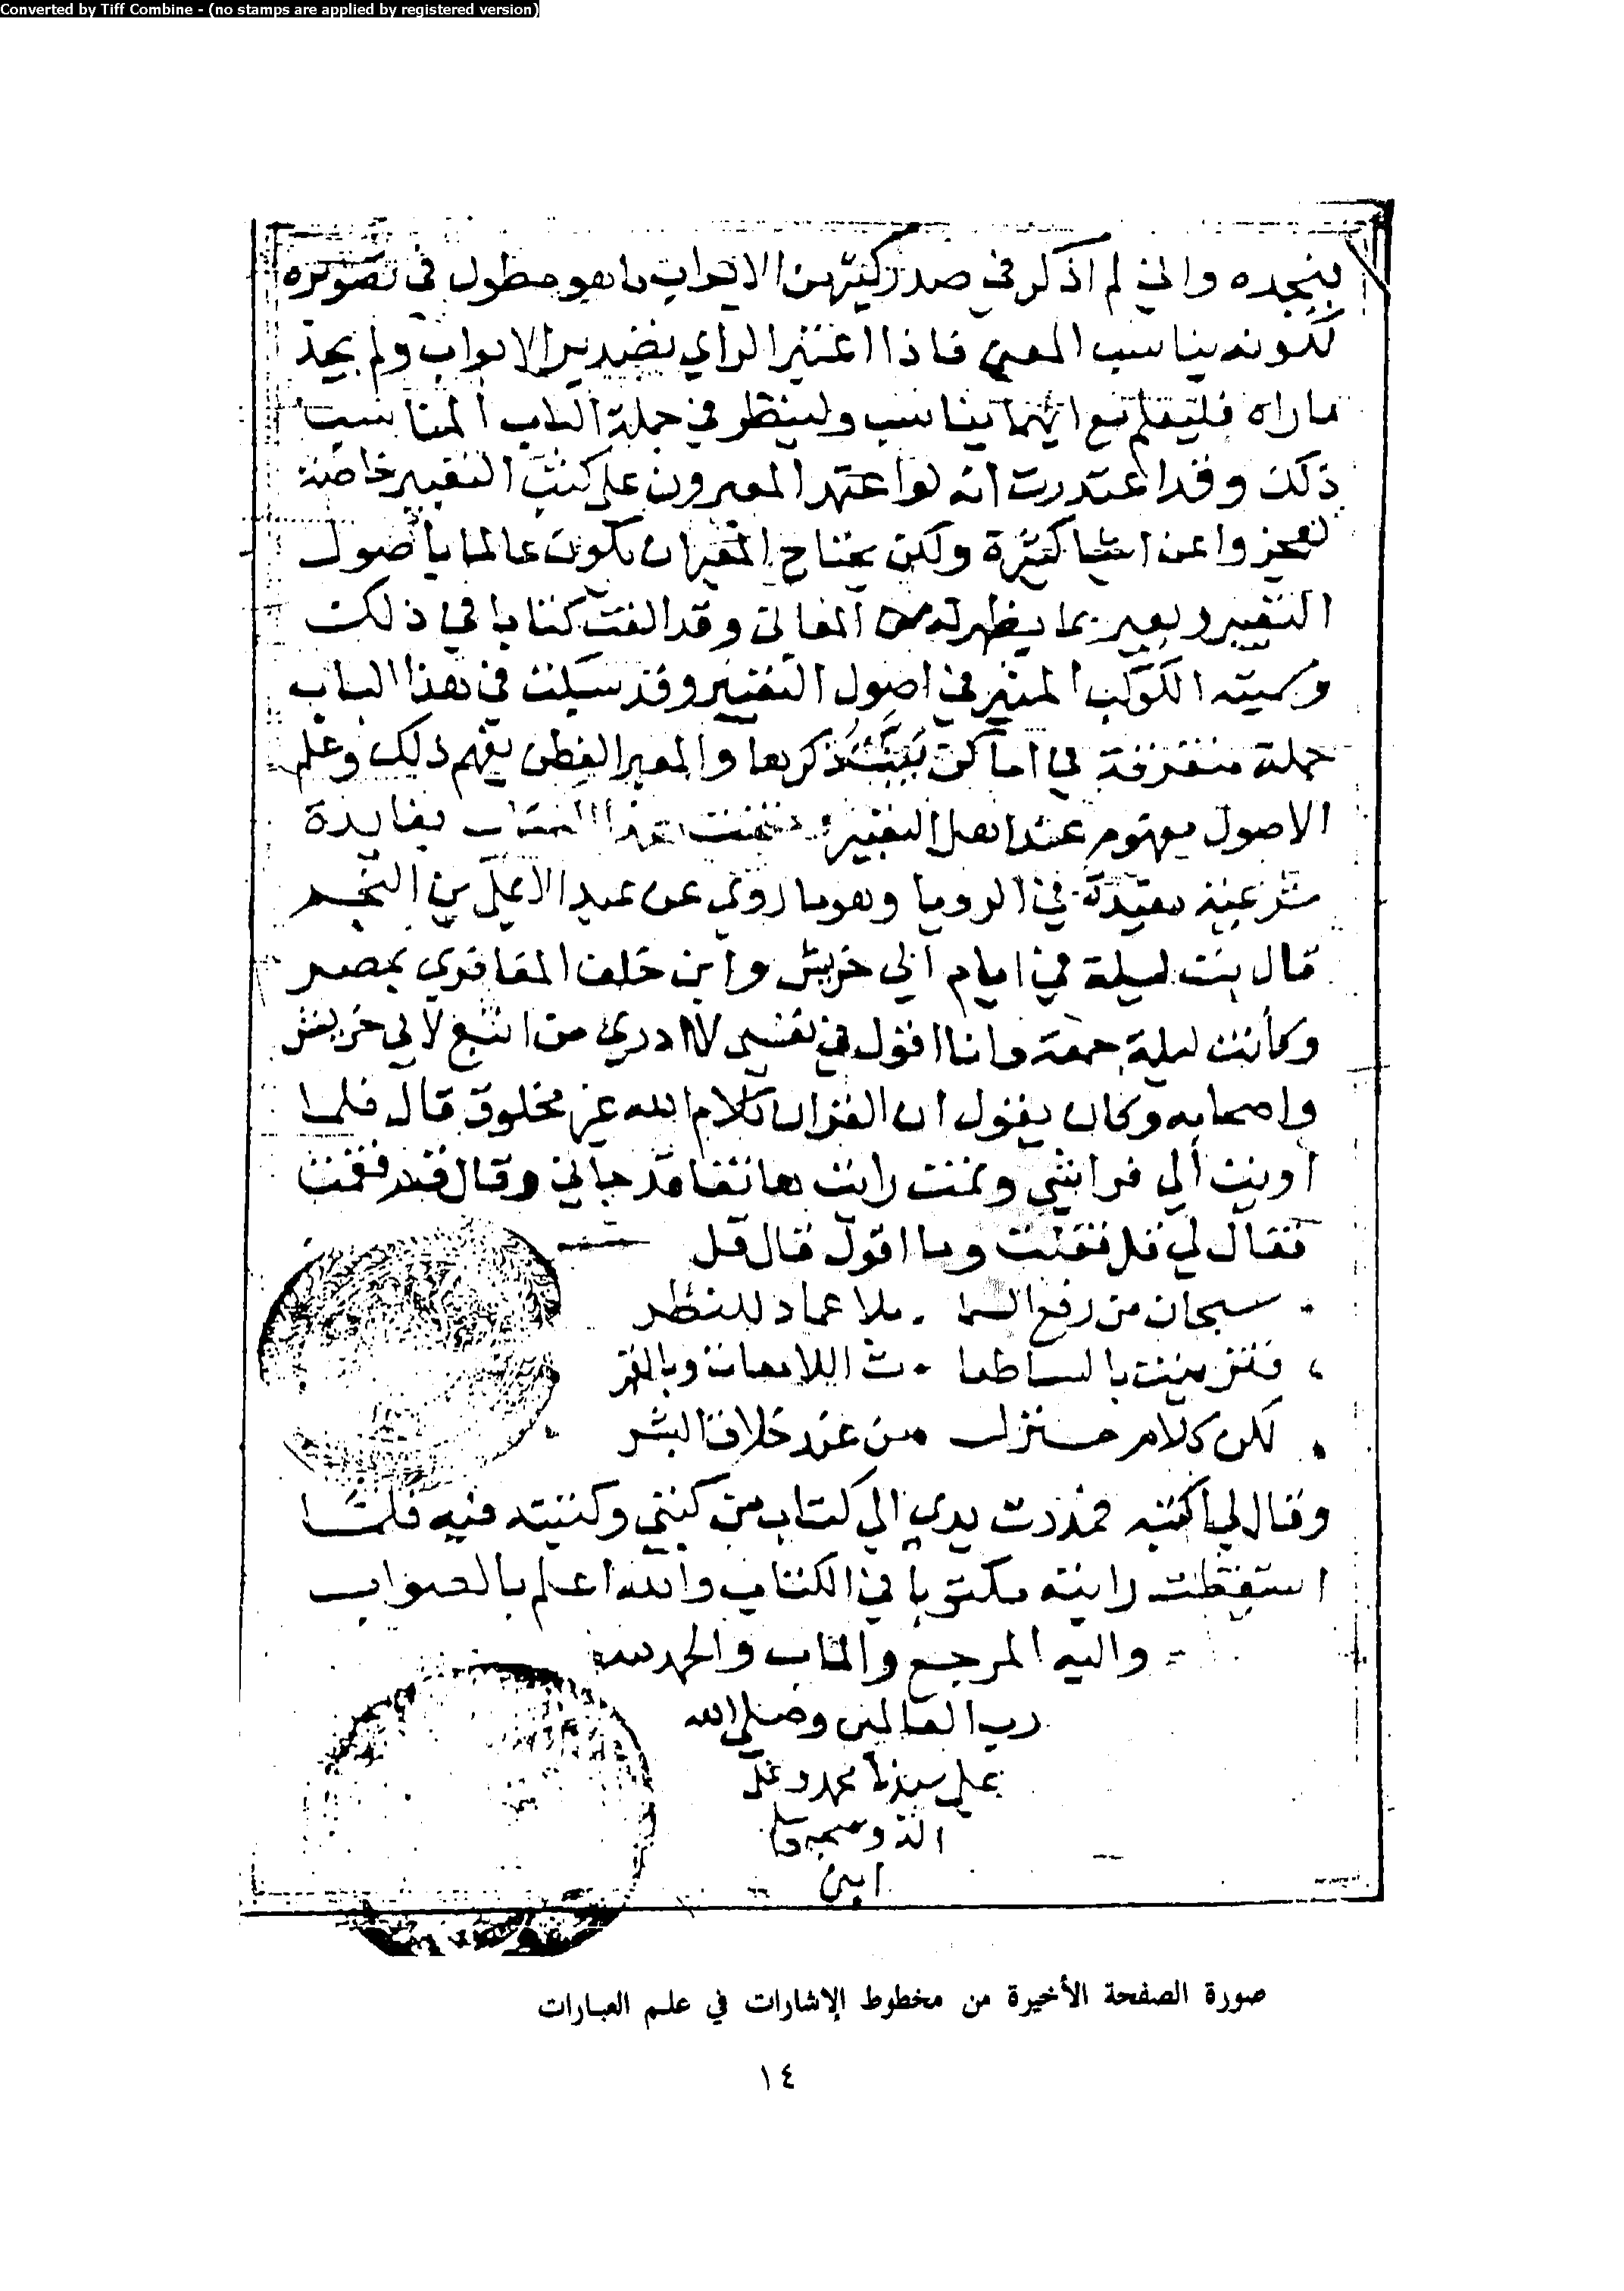 Converted by Tiff Combine - (no stamps are applied by registered version)
واني لم اذكر في صدر كثير من الابواب ما هو مطول في تصويره
لكونه يناسب المعنى فاذا اعتبر الراي تصدير الابواب ولم يجد
ما راه فليعلم مع ايهما يناسب ولينظر في جملة الباب المناسب
ذلك وقد اعتذرت انه لو اعتمد المعبرون على كتب التعبير خاصة
لعجزوا عن اشيا كثيرة ولكن يحتاج المعبر ان يكون عالما باصول
التعبير ويعبر بما يظهر له من المعاني وقد الفت كتابا في ذلك
وسميته الكوكب المنير في اصول التعبير وقد سكت في هذا الباب
جملة متفرقة في اماكن ذكرها والمعبر الفطن يفهم ذلك وعلم
الاصول مفهوم عند اهل التعبير وختمت هذا الكتاب بفايدة
شرعية مفيدة في الرويا وهو ما روي عن عبد الاعلى بن النجم
قال بت ليلة في ايام ابي حريش وابن خلف المعافري بمصر
وكانت ليلة جمعة وانا اقول في نفسي لا ادري من اتبع لابي حريش
واصحابه وكان يقول ان القران كلام الله غير مخلوق قال فلما
اويت الي فراشي ونمت رايت هاتفا قد جاني وقال قم فقمت
فقال لي قل فقلت وما اقول قال قل
سبحان من رفع السما بلا عماد للنظر
فتزينت بالساطعا ت اللامعات وبالقمر
لكن كلام منزل من عند خلاق البشر
وقال لي اكتبه فمددت يدي الي كتاب من كتبي وكتبته فيه فلما
استيقظت رايته مكتوبا في الكتاب والله اعلم بالصواب
واليه المرجع والماب والحمد لله
رب العالمين وصلى الله
على سيدنا محمد وعلى
اله وصحبه وسلم
امين
صورة الصفحة الأخيرة من مخطوط الإشارات في علم العبارات
١٤